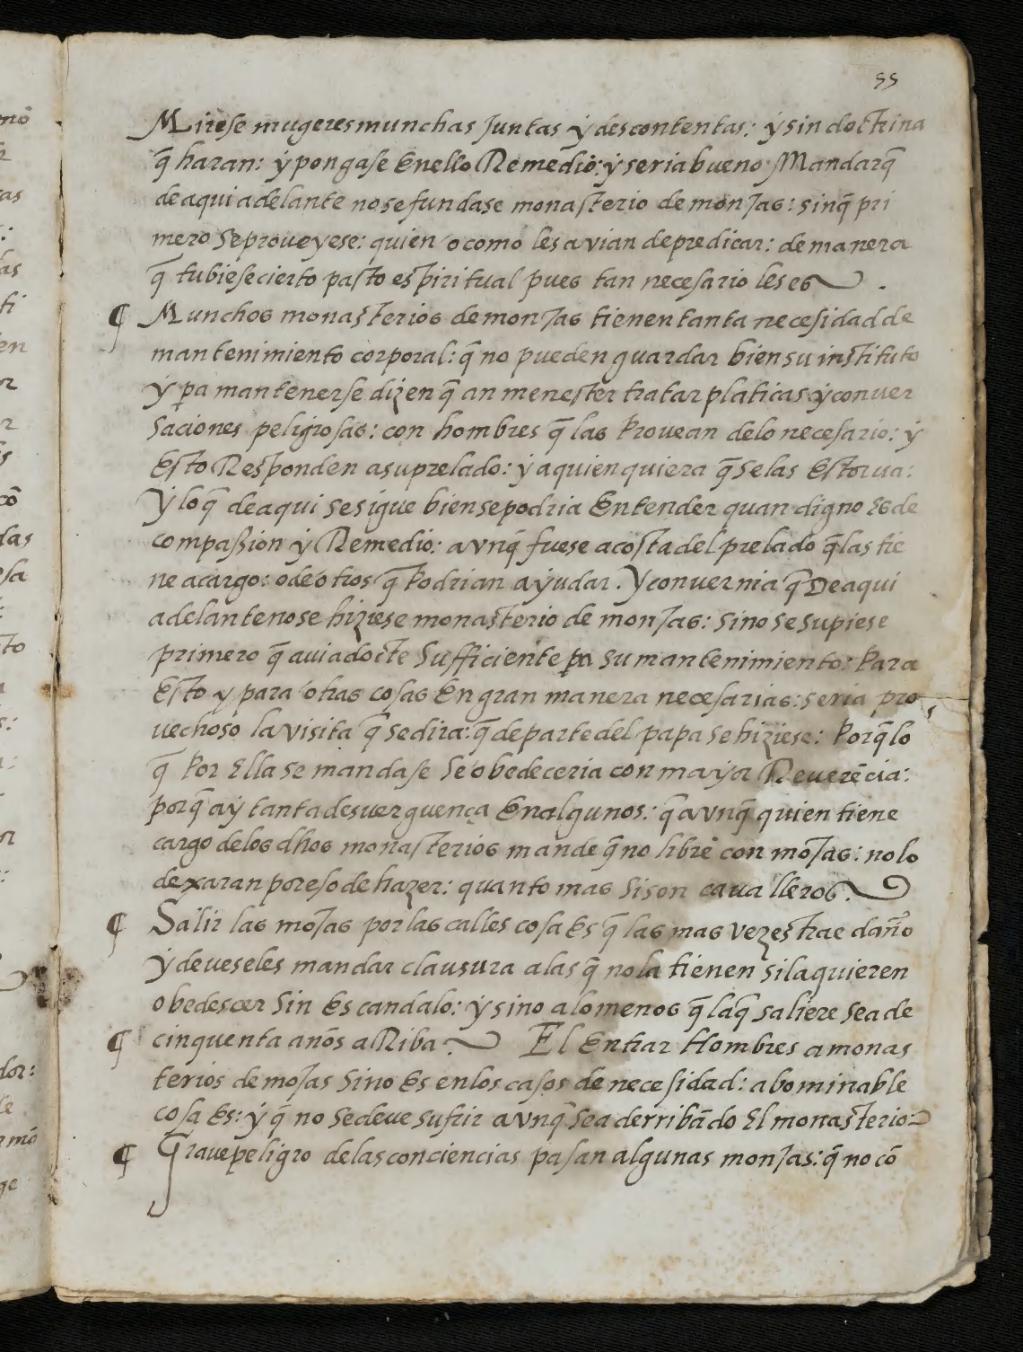 55
Mirese mugeres munchas juntas y descontentas: y sin doctrina
q̃ haran: y pongase En ello Remedio: y seria bueno Mandar q̃
de aqui adelante no se fundase monasterio de monjas: sin q̃ pri
mero se proueyese: quien o como les avian de predicar: de manera
q̃ tubiese cierto pasto espiritual pues tan necesario les es.
¶ Munchos monasterios de monjas tienen tanta necesidad de
mantenimiento corporal: q̃ no pueden guardar bien su instituto
y pa mantenerse dizen q̃ an menester tratar platicas y conuer
saciones peligrosas: con hombres q̃ las Prouean delo necesario: y
Esto Responden a su prelado: y a quien quiera q̃ se las Estorua:
Y lo q̃ de aqui se sigue bien se podria Entender quan digno Es de
compassion y Remedio: avnq̃ fuese a costa del prelado q̃ las tie
ne a cargo: o de otros q̃ Podrian ayudar. Y conuernia q̃ De aqui
adelante no se hiziese monasterio de monjas: sino se supiese
primero q̃ auia docte Sufficiente pa su mantenimiento: Para
Esto y para otras cosas En gran manera necesarias: seria pro
uechoso la visita q̃ se dira: q̃ de parte del papa se hiziese: Porq̃ lo
q̃ Por Ella se mandase se obedeceria con mayor Reverẽcia:
porq̃ ay tanta desuerguença En algunos: q̃ avnq̃ quien tiene
cargo de los dhos monasterios mande q̃ no libre con mõjas: no lo
dexaran por eso de hazer: quanto mas si son caualleros.
¶ Salir las mõjas por las calles cosa Es q̃ las mas vezes trae daño
y deueseles mandar clausura a las q̃ no la tienen si la quieren
obedescer Sin Escandalo: y si no a lo menos q̃ la q̃ saliere sea de
¶ cinquenta años aRiba. El Entrar Hombres a monas
terios de mõjas Sino Es en los casos de necesidad: abominable
cosa Es: y q̃ no se deue sufrir avnq̃ sea derribãdo El monasterio:
¶ Graue peligro de las conciencias pasan algunas monjas: q̃ no cõ